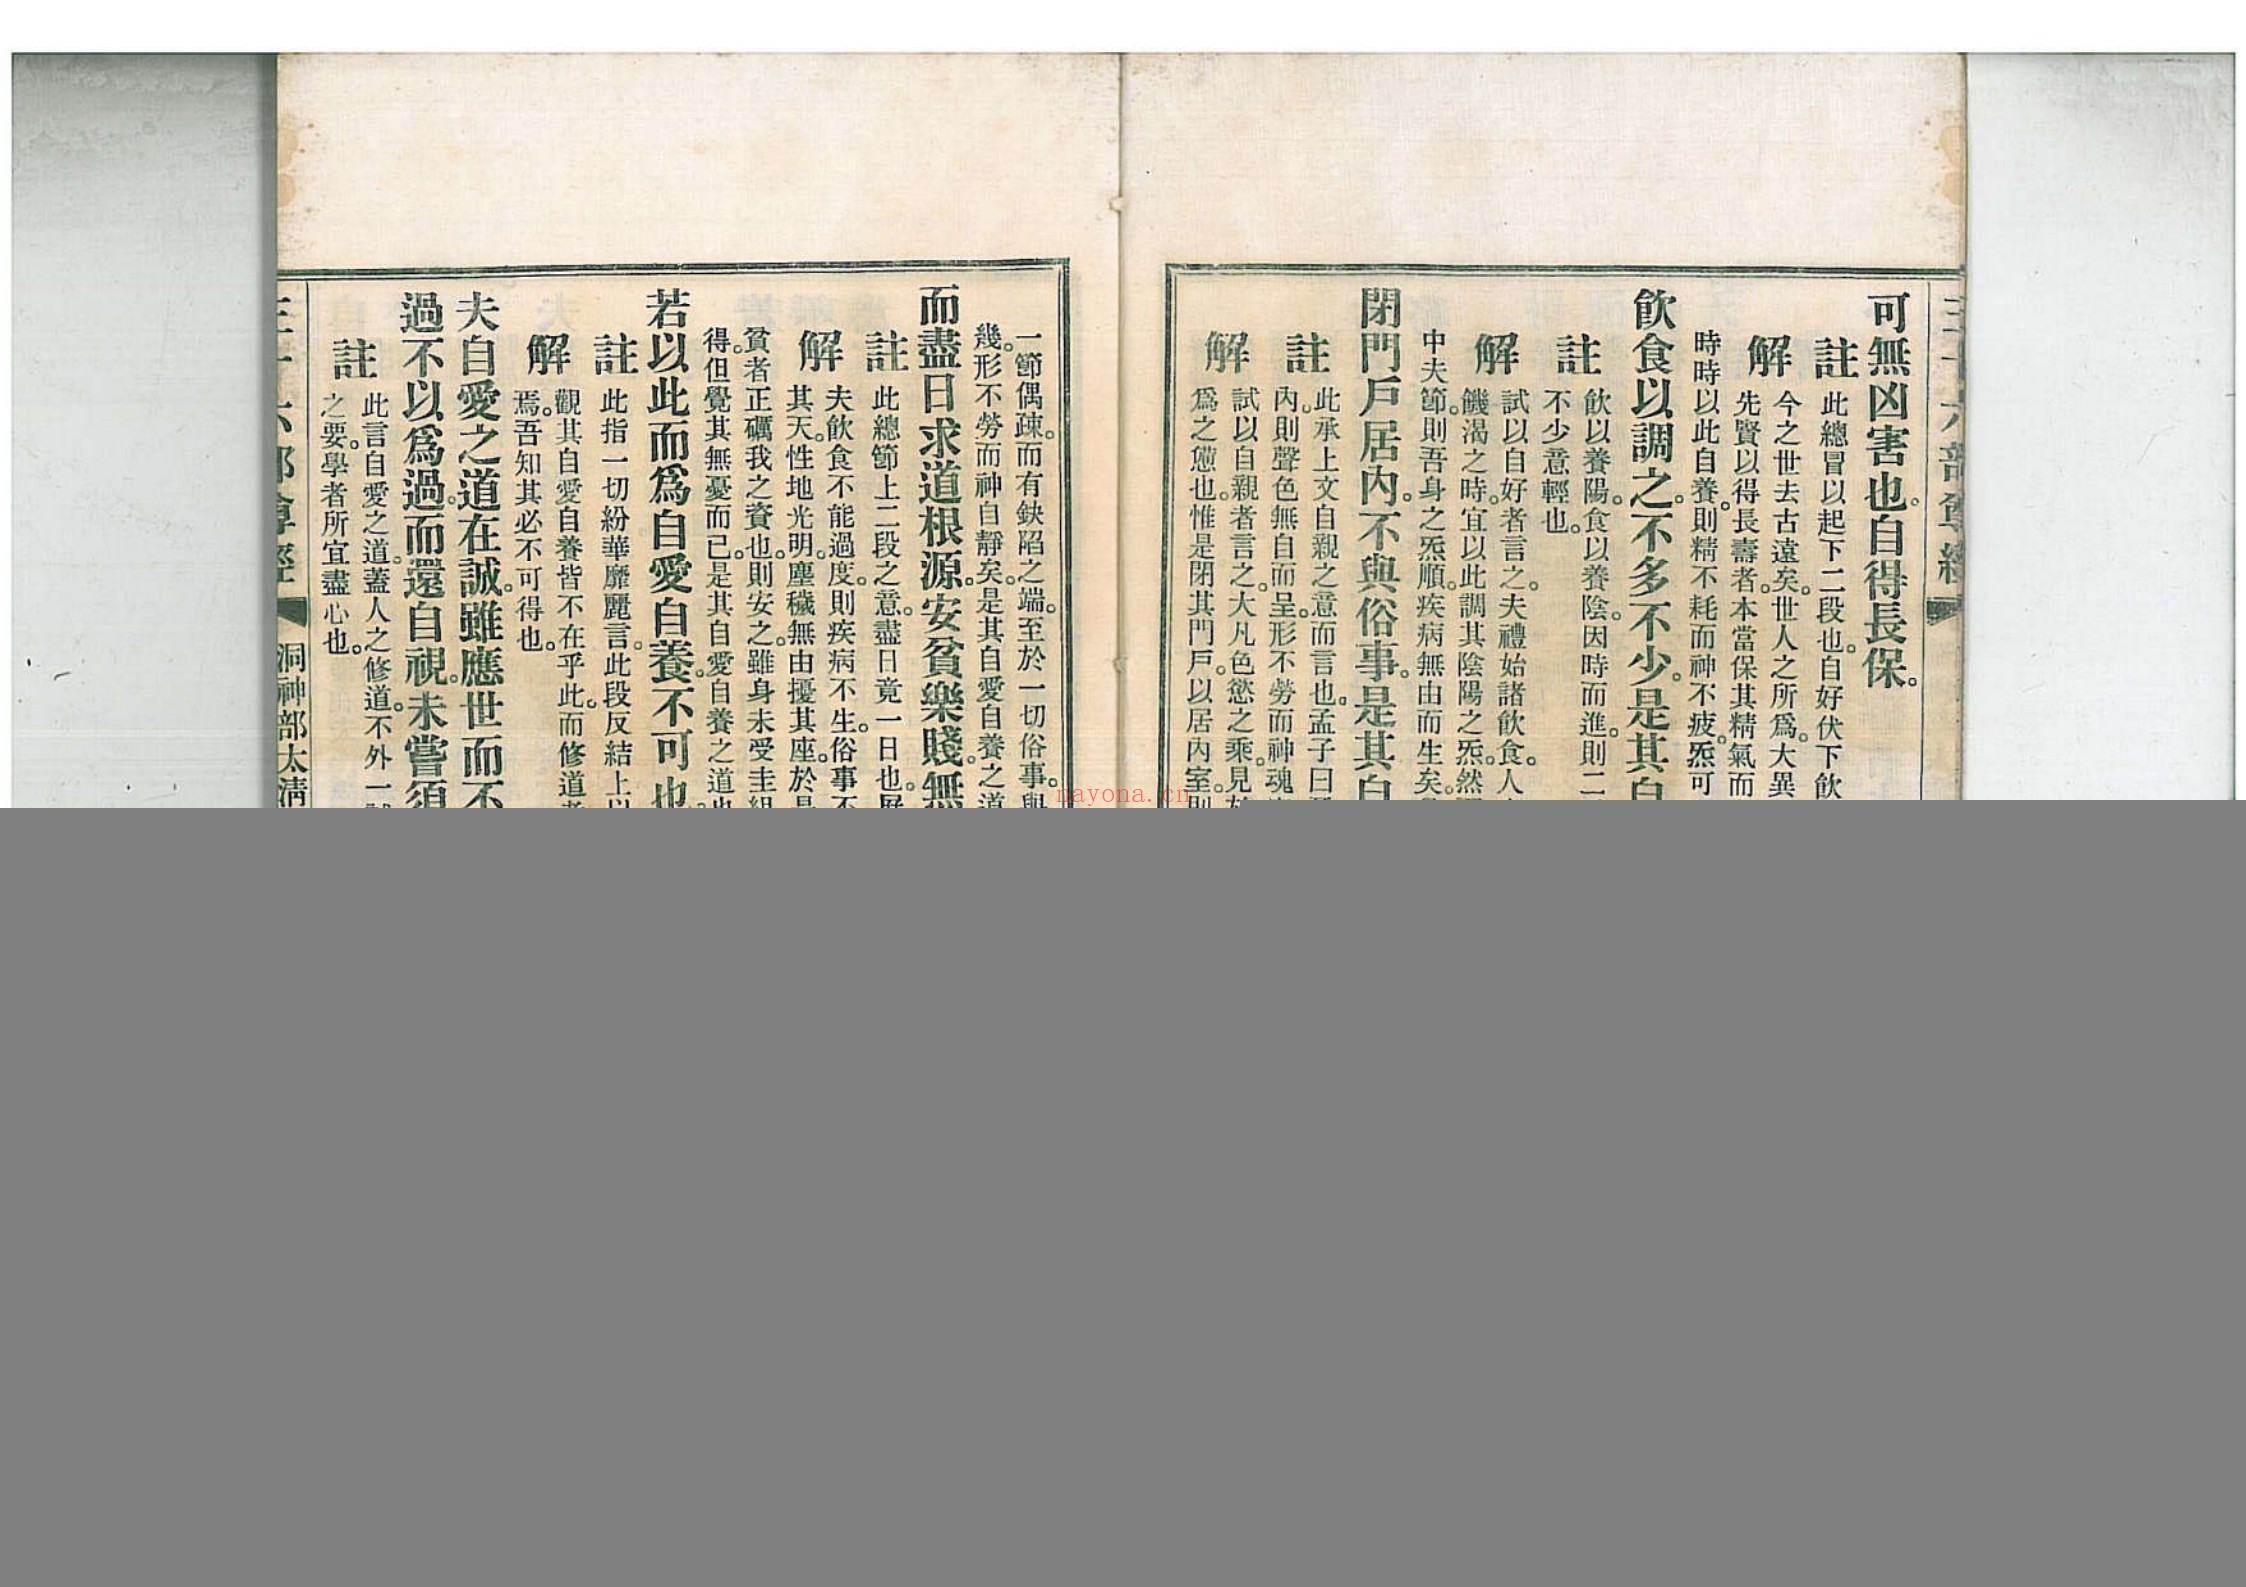 可無凶害也。自得長保。
註 此總冒以起下二段也。自好伏下飲
解 今之世去古遠矣。世人之所爲。大異
先賢以得長壽者。本當保其精氣而
時時以此自養。則精不耗而神不疲。炁可
飲食以調之。不多不少。是其自
註 飲以養陽。食以養陰。因時而進。則二
不少意輕也。
解 試以自好者言之。夫禮始諸飲食。人
饑渴之時。宜以此調其陰陽之炁。然
中夫節。則吾身之炁順。疾病無由而生矣。
閉門戶居內。不與俗事。是其自
註 此承上文自親之意而言也。孟子曰
內。則聲色無自而呈。形不勞而神魂
解 試以自親者言之。大凡色慾之乘。見
爲之愆也。惟是閉其門戶。以居內室。則
一節偶疎。而有鈌陷之端。至於一切俗事。與
幾。形不勞而神自靜矣。是其自愛自養之道
而盡日求道根源。安貧樂賤。無
註 此總節上二段之意。盡日竟一日也。
解 夫飲食不能過度。則疾病不生。俗事不
其天。性地光明。塵穢無由擾其座。於是
貧者正礪我之資也。則安之。雖身未受圭組
得。但覺其無憂而已。是其自愛自養之道也
若以此而爲自愛自養。不可也。
註 此指一切紛華靡麗言。此段反結上以
解 觀其自愛自養。皆不在乎此。而修道者
焉。吾知其必不可得也。
夫自愛之道在誠。雖應世而不
過。不以爲過。而還自視。未嘗須
註 此言自愛之道。蓋人之修道。不外一誠
之要。學者所宜盡心也。
洞神部太清
nayona.cn